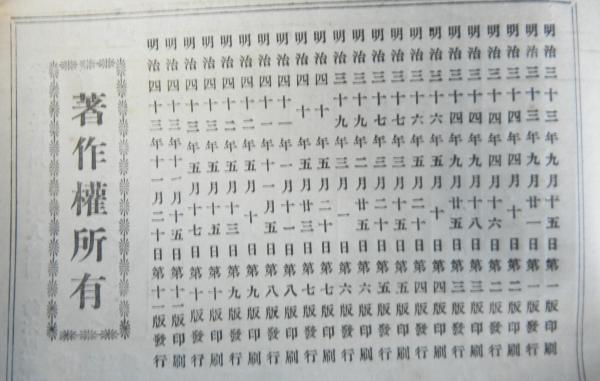 明治三十三年九月十五日第一版印刷
明治三十三年九月廿一日第一版發行
明治三十四年四月十日第二版印刷
明治三十四年四月十六日第二版發行
明治三十四年九月十八日第三版印刷
明治三十四年九月廿五日第三版發行
明治三十六年五月十日第四版印刷
明治三十六年五月二十日第四版發行
明治三十七年三月十五日第五版印刷
明治三十七年三月二十日第五版發行
明治三十九年二月廿五日第六版印刷
明治三十九年三月一日第六版發行
明治四十年五月二十日第七版印刷
明治四十年五月廿三日第七版發行
明治四十一年一月十一日第八版印刷
明治四十一年十一月五日第八版發行
明治四十二年五月十日第九版印刷
明治四十二年五月十三日第九版發行
明治四十三年五月十五日第十版印刷
明治四十三年五月十七日第十版發行
明治四十三年十一月十五日第十一版印刷
明治四十三年十一月二十日第十一版發行
著作權所有